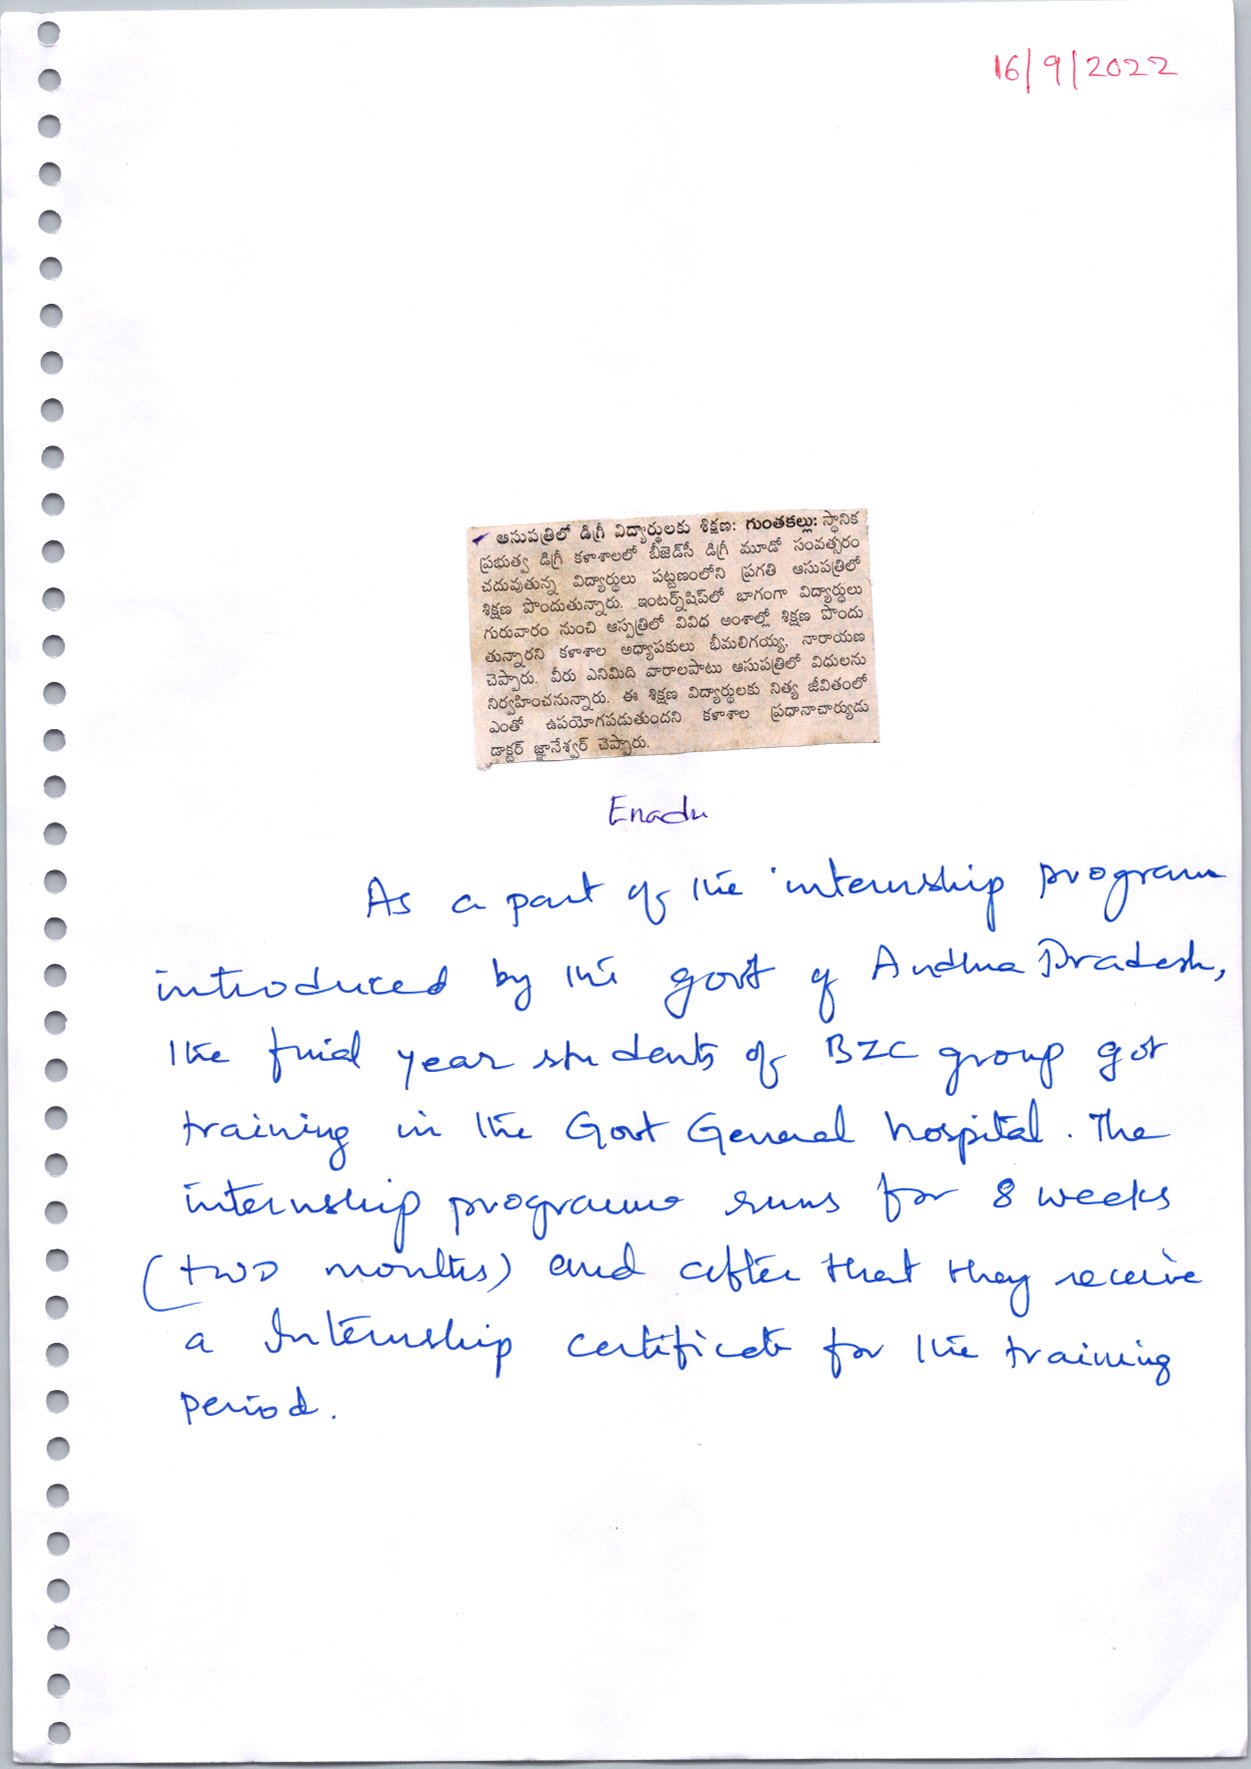 16/9/2022
ఆసుపత్రిలో డిగ్రీ విద్యార్థులకు శిక్షణ: గుంతకల్లు: స్థానిక
ప్రభుత్వ డిగ్రీ కళాశాలలో బీజెడ్‌సీ డిగ్రీ మూడో సంవత్సరం
చదువుతున్న విద్యార్థులు పట్టణంలోని ప్రగతి ఆసుపత్రిలో
శిక్షణ పొందుతున్నారు. ఇంటర్న్‌షిప్‌లో భాగంగా విద్యార్థులు
గురువారం నుంచి ఆస్పత్రిలో వివిధ అంశాల్లో శిక్షణ పొందు
తున్నారని కళాశాల అధ్యాపకులు భీమలిగయ్య, నారాయణ
చెప్పారు. వీరు ఎనిమిది వారాలపాటు ఆసుపత్రిలో విధులను
నిర్వహించనున్నారు. ఈ శిక్షణ విద్యార్థులకు నిత్య జీవితంలో
ఎంతో ఉపయోగపడుతుందని కళాశాల ప్రధానాచార్యుడు
డాక్టర్ జ్ఞానేశ్వర్ చెప్పారు.
Enadu
As a part of the internship program
introduced by the govt of Andhra Pradesh,
the final year students of BZC group got
training in the Govt General hospital. The
internship programe runs for 8 weeks
(two months) and after that they receive
a Internship certificate for the training
period.